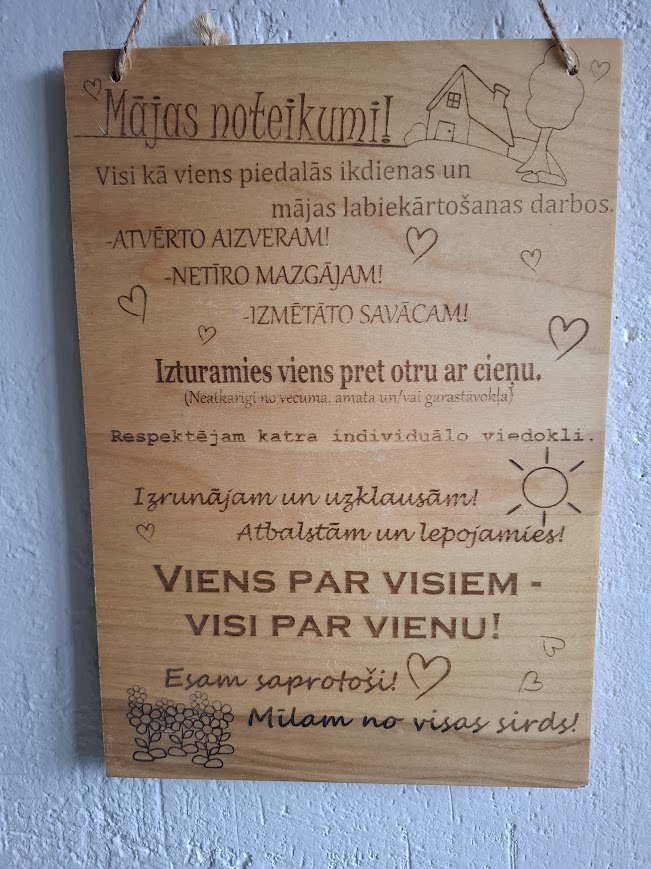 Mājas noteikumi!
Visi kā viens piedalās ikdienas un
mājas labiekārtošanas darbos.
-ATVĒRTO AIZVERAM!
-NETĪRO MAZGĀJAM!
-IZMĒTĀTO SAVĀCAM!
Izturamies viens pret otru ar cieņu.
(Neatkarīgi no vecuma, amata un/vai garastāvokļa)
Respektējam katra individuālo viedokli.
Izrunājam un uzklausām!
Atbalstām un lepojamies!
VIENS PAR VISIEM -
VISI PAR VIENU!
Esam saprotoši!
Mīlam no visas sirds!